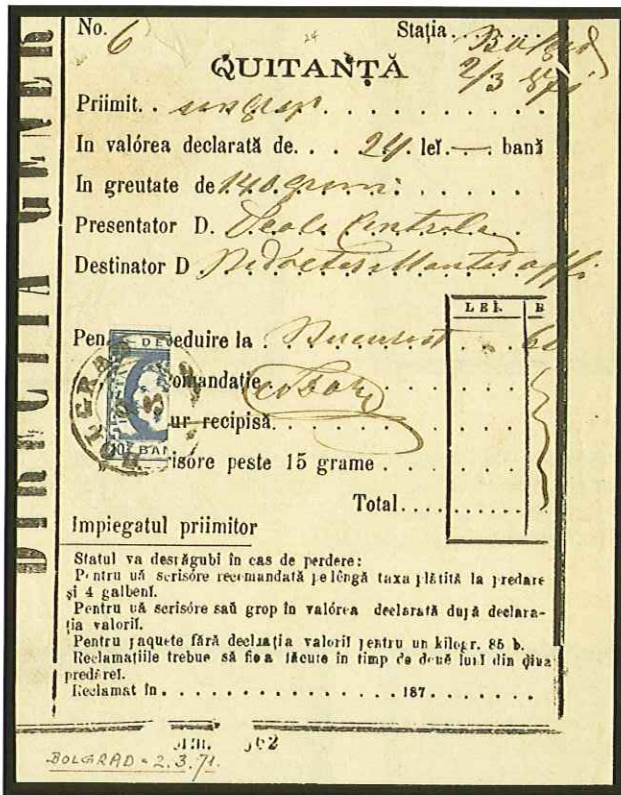 No. 6 Stația. . Bolgrad
2/3 871
QUITANȚĂ
Priimit. .
In valórea declarată de. . . 24. leĭ. — . bani
In greutate de 140 grami
Presentator D. Scola Centrala
Destinator D
LEĬ. B
Pen deduire la . Bucuresti 60
omandație
ur recipisă.
risóre peste 15 grame .
Total.
Impiegatul priimitor
Statul va destăgubi în cas de perdere:
Pentru uă scrisóre recomandată pe lêngă taxa plătită la predare
și 4 galbenĭ.
Pentru uă scrisóre saŭ grop în valórea declarată după declara-
ția valoriĭ.
Pentru paquete fără declrația valoriĭ pentru un kilogr. 85 b.
Reclamațiile trebue să fie a făcute in timp de doué lunĭ din diua
predăreĭ.
Reclamat în . . . . . . . . . . . . . . . 187. . . . . . .
BOLGRAD - 2.3.71.
DIRECȚIA GENER